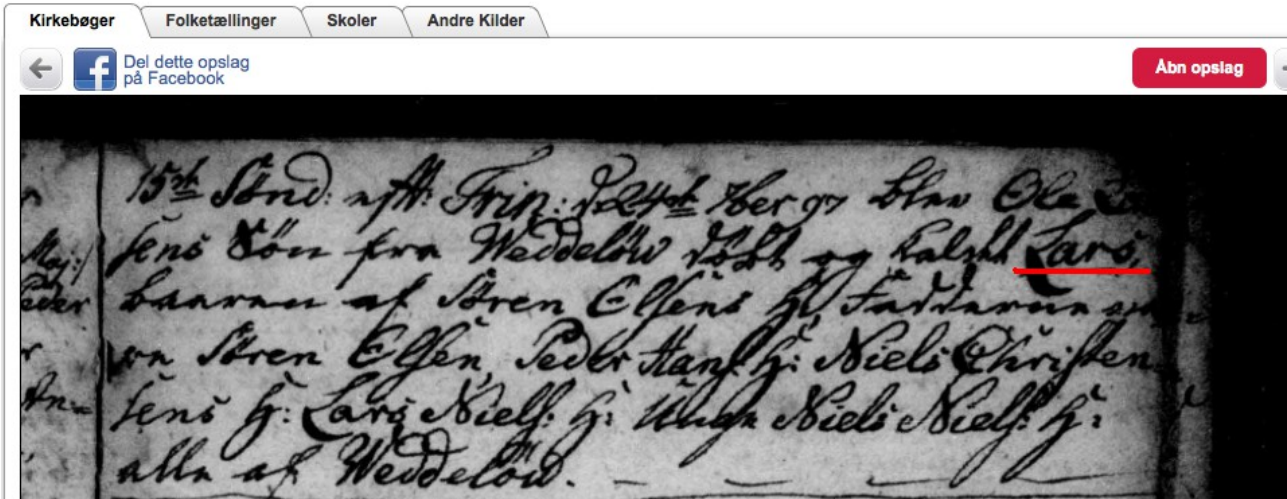 Kirkebøger Folketællinger Skoler Andre Kilder
Del dette opslag
på Facebook
Åbn opslag
15de Sønd: efft: Trin: d. 24de 7ber 97 blev Ole
sens Søn fra Weddeløw døbt og kaldet Lars,
Maj:/
baaren af Søren Elsens H; Fadderne
Peder
Søren Elsen, Peder Hans: H: Niels Christen
An=
sens H: Lars Niels: H: Unge Niels Niels: H:
alle af Weddeløw.